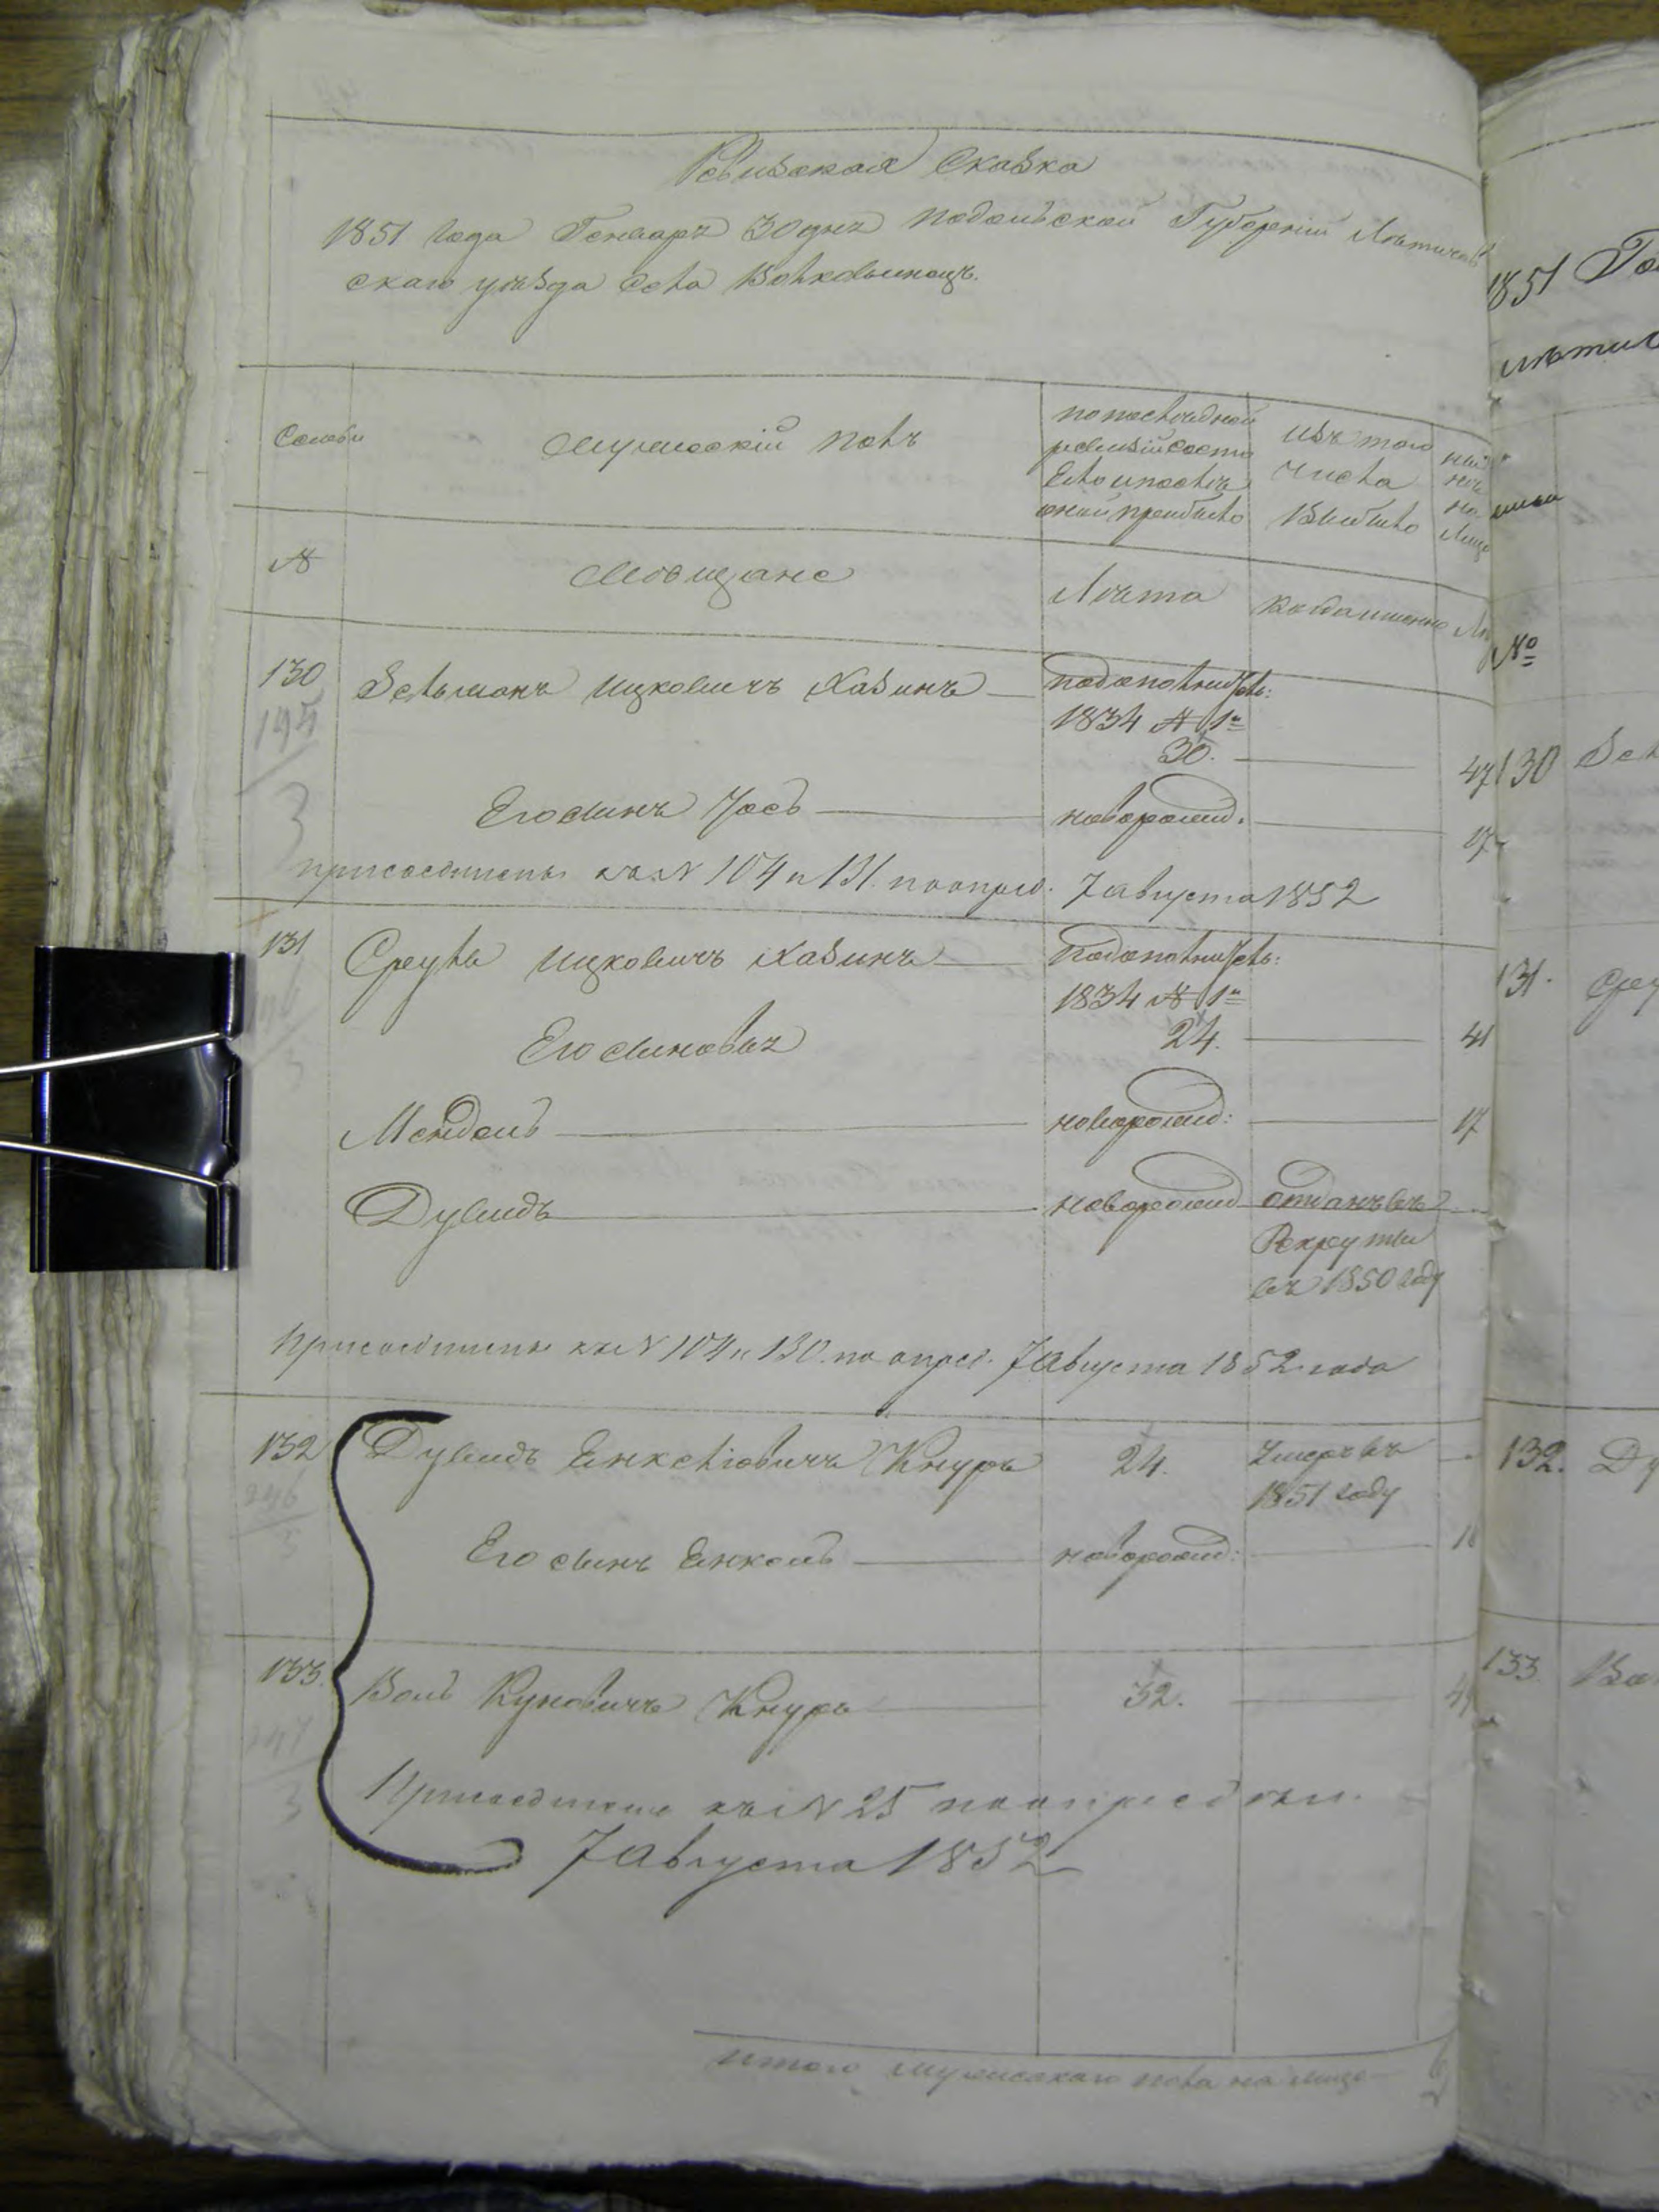 Ревизская Сказка
1851 года Генваря 30 дня Подольской Губерніи Летичев
скаго уѣзда Села Волковынецъ.
Семьи
Мужескій полъ
По последней
ревизіи состо
яло и послѣ
оной прибыло
Изъ того
числа
выбыло
ны
на
лицо
№
Мещане
Лѣта
Когда именно
130
Зельманъ Ицковичъ Хазинъ
1834 № 1й
30.
47
Его сынъ Іось
новорожд.
17
присоединены къ № 104 и 131. по опред. 7 Августа 1852
131
Сруль Ицковичъ Хазинъ
1834 № 1й
24.
41
Его сыновья
Мендель
новорожд:
17
Дувидъ
новорожд
отданъ въ
Рекруты
въ 1850 году
Присоединены къ № 104 и 130. по опред. 7 Августа 1852 года
132
Дувидъ Янкеліовичъ Кнуръ
24.
Умеръ въ
1851 году
Его сынъ Янкель
новорожд:
133.
Воль Куновичъ Кнуръ
32.
49
Присоединены къ № 25 по определен.
7 Августа 1852
Итого мужескаго пола на лицо
1851
№
130
131.
132.
133